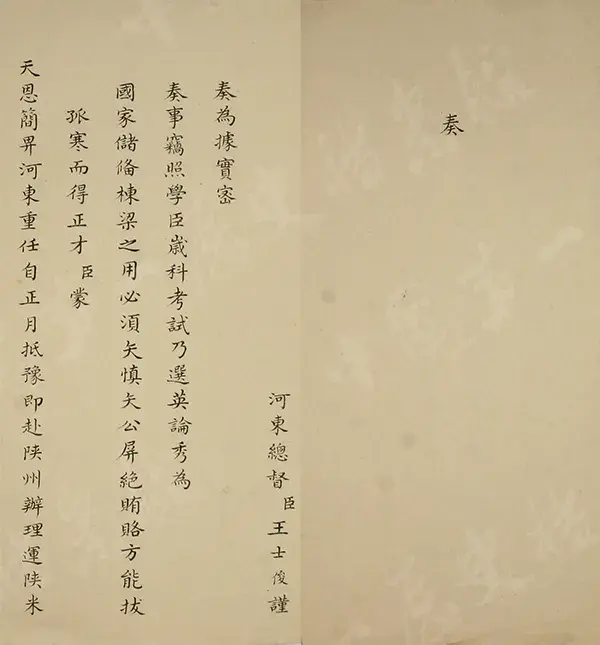 奏
河東總督臣王士俊謹
奏為據實密
奏事竊照學臣歲科考試乃選英論秀為
國家儲備棟梁之用必須矢慎矢公屏絕賄賂方能拔
孤寒而得正才臣蒙
天恩簡畀河東重任自正月抵豫即赴陝州辦理運陝米